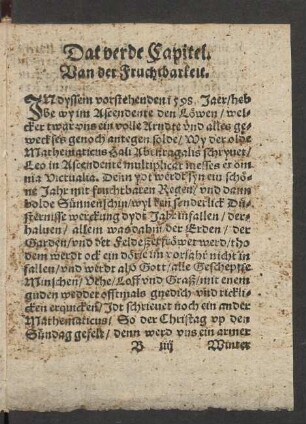 Dat verde Capitel.
Van der Fruchtbarkeit.
INdyssem vorstehenden 1598. Jaer/ heb
be wy im Ascendente den Löwen/ wel-
cker twar vns ein volle Arndte vnd alles ge-
weckses genoch antegen solde/ Wy der olde
Mathematicus Hali Abenragalis schryuet/
Leo in Ascendente multiplicat messes et om
nia Victualia. Denn ydt werdt syn ein schö-
ne Jahr mit fruchtbaren Regen/ vnd dann
holde Sünnenschin/ wyl ken sonderlick Dü-
sternisse werckung dydt Jahr infallen/ der-
haluen/ allem was dahm der Erden/ der
Garden/ vnd der Feldes werd/ tho
dem werdt ock ein döre im vorjahr nicht in
fallen/ vnd werdt also Gott/ alle Geschepffe
Minschen/ Vehe/ Loff vnd Graß/ mit enem
guden wedder offtmals gnedich vnd rickli-
cken erquicken/ Jdt schrieuet noch ein ander
Mathematicus/ So der Christag vp den
Sündag gefelt/ denn werd vns ein armer
B iiij Winter